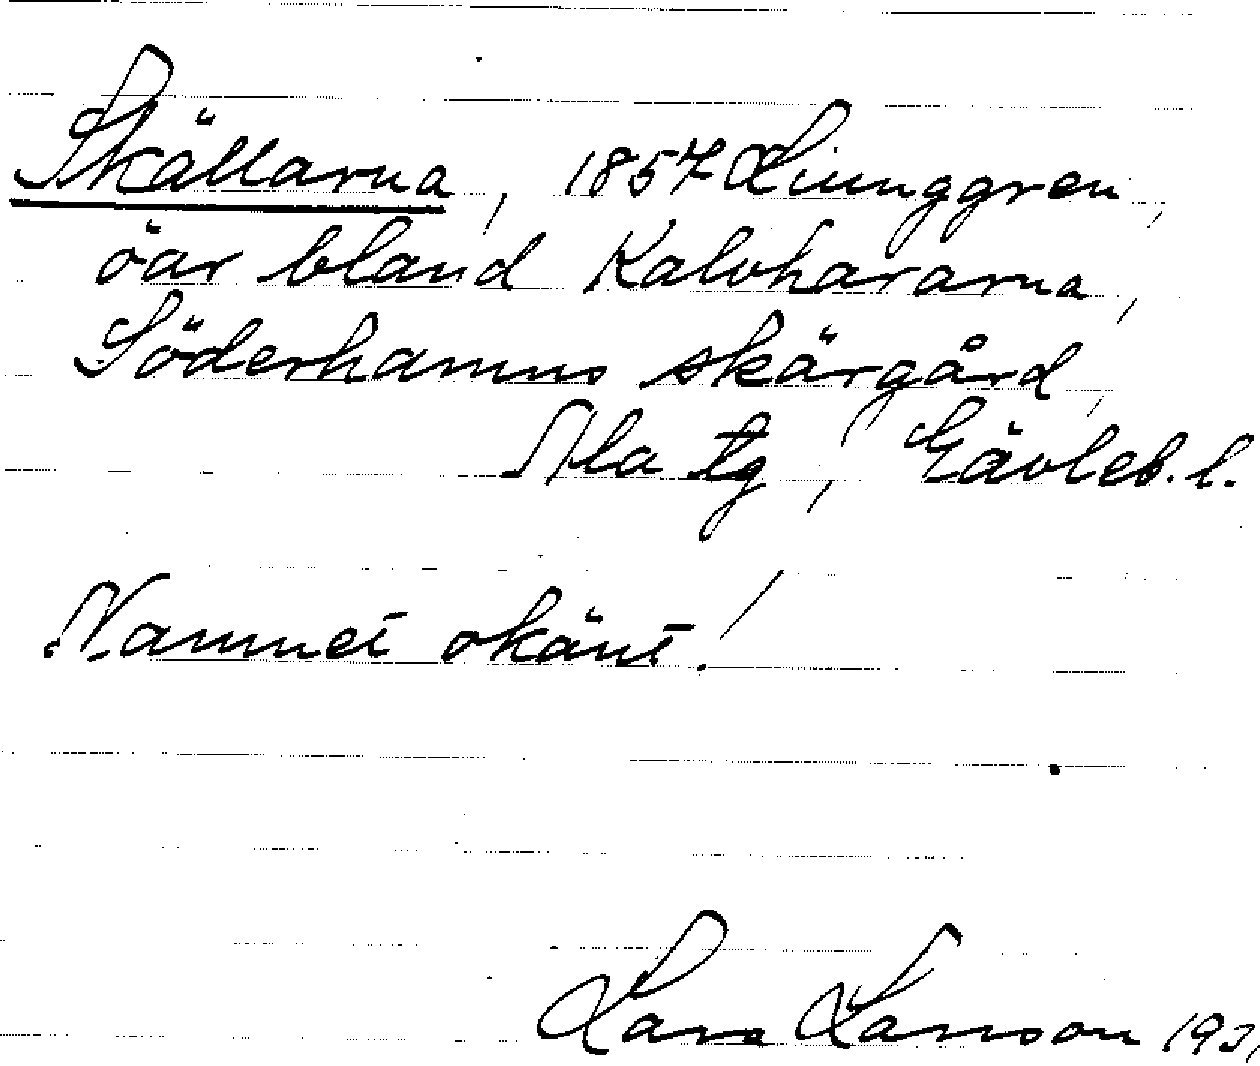 Skällarna, 1857 Liunggren,
öar bland Kalvhararna,
Söderhamns skärgård,
Ala tg, Gävleb. l.
Namnet okänt!
Lars Larsson 193